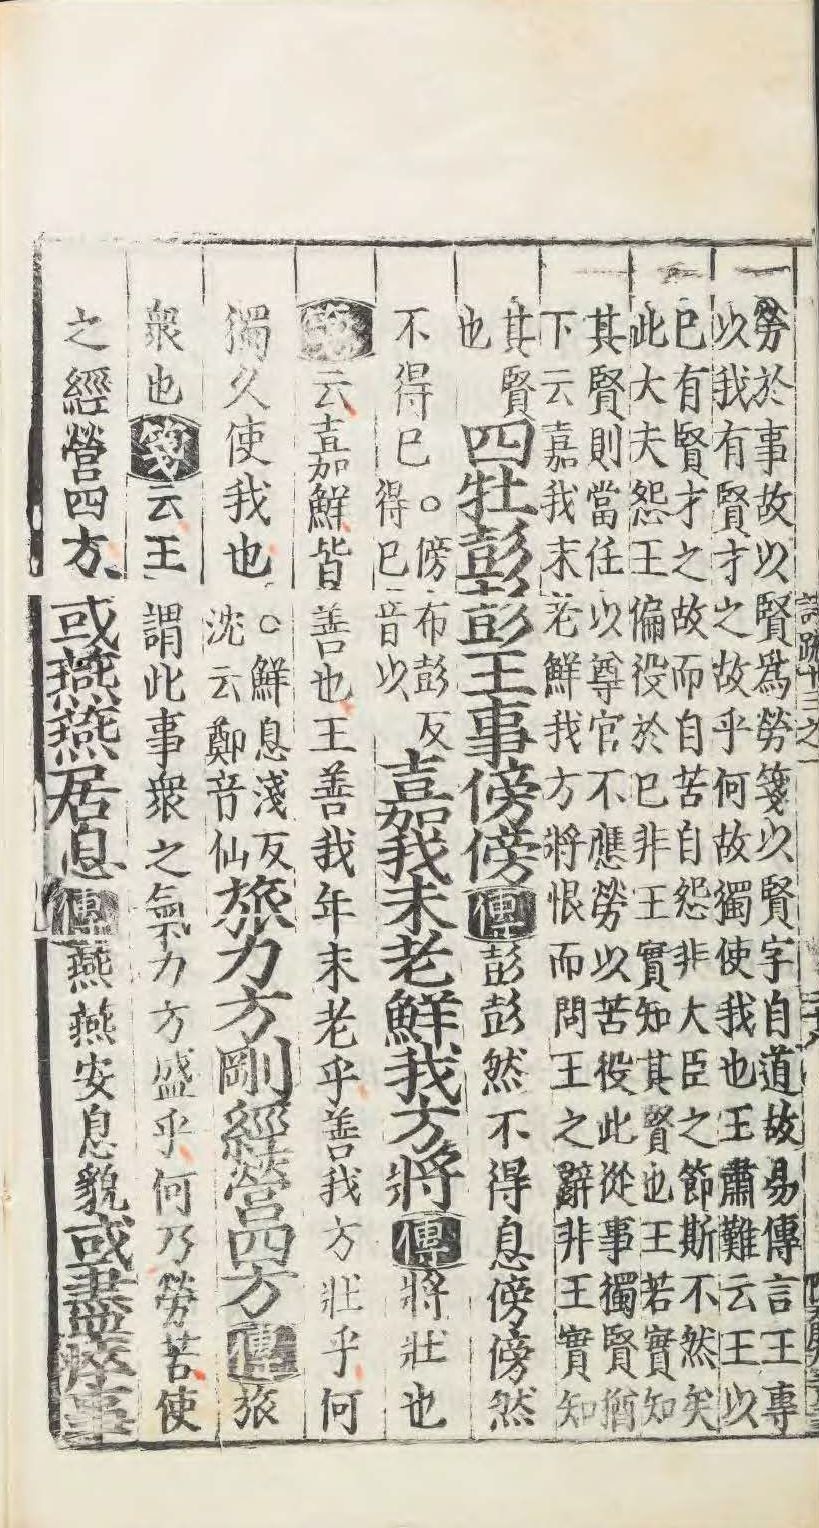 詩疏十三之一
勞於事故以賢爲勞箋以賢字自道故易傳言王專
以我有賢才之故乎何故獨使我也王肅難云王以
已有賢才之故而自苦自怨非大臣之節斯不然矣
此大夫怨王偏役於已非王實知其賢也王若實知
其賢則當任以尊官不應勞以苦役此從事獨賢猶
下云嘉我未老鮮我方將恨而問王之辭非王實知
其賢也四牡彭彭王事傍傍傳彭彭然不得息傍傍然
不得已○傍布彭反得已音以嘉我未老鮮我方將傳將壯也
箋云嘉鮮皆善也王善我年未老乎善我方壯乎何
獨久使我也○鮮息淺反沈云鄭音仙旅力方剛經營四方傳旅
衆也箋云王謂此事衆之氣力方盛乎何乃勞苦使
之經營四方或燕燕居息傳燕燕安息貌或盡瘁事